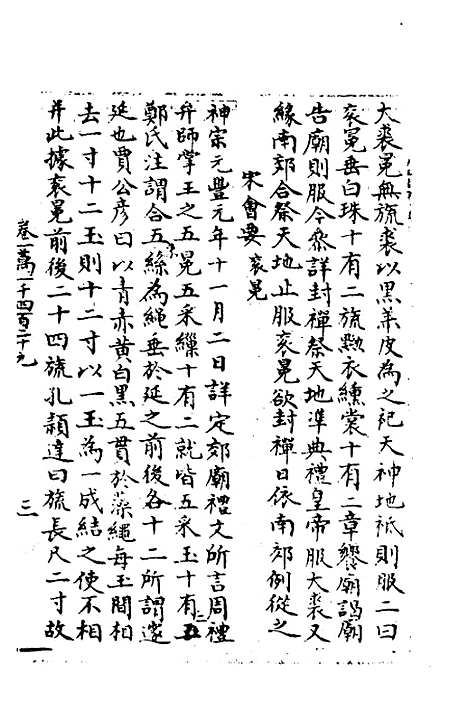 大裘冕無旒裘以黑羊皮為之祀天神地祗則服二曰
袞冕垂白珠十有二旒黝衣纁裳十有二章饗廟謁廟
告廟則服今叅詳封禪祭天地準典禮皇帝服大裘又
緣南郊合祭天地止服袞冕欲封禪日依南郊例從之
宋會要 袞冕
神宗元豐元年十一月二日詳定郊廟禮文所言周禮
弁師掌王之五冕五采繅十有二就皆五采玉十有二
鄭氏注謂合五絲為繩垂於延之前後各十二所謂邃
延也賈公彥曰以青赤黃白黑五貫於藻繩每玉間相
去一寸十二玉則十二寸以一玉為一成結之使不相
并此據袞冕前後二十四旒孔穎達曰旒長尺二寸故
卷一萬一千四百二十九
三